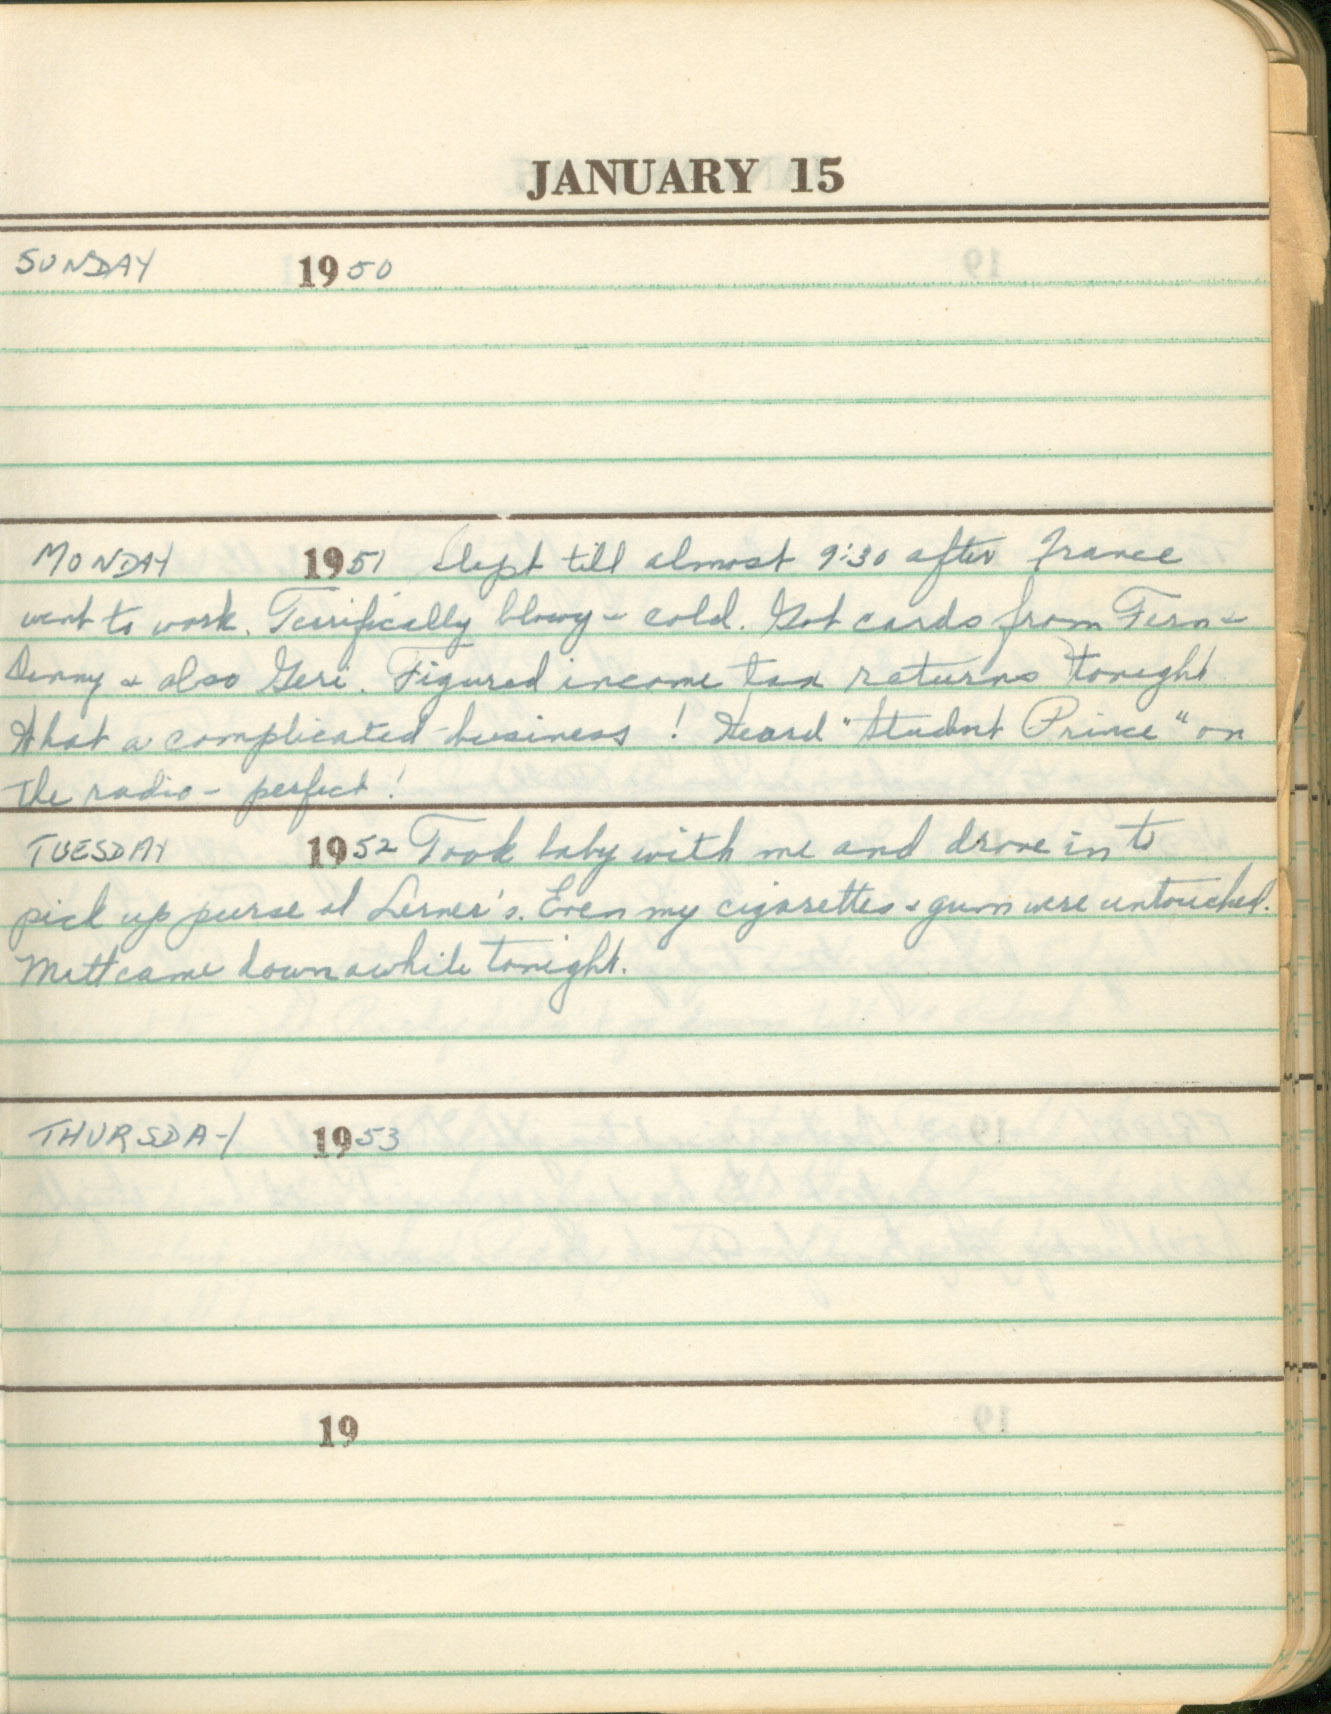 JANUARY 15
SUNDAY 1950
MONDAY 1951 Slept till almost 9:30 after France
went to work. Terrifically blowy - cold. Got cards from Fern &
Denny & also Geri. Figured income tax returns tonight
What a complicated business! Heard "Student Prince" on
the radio - perfect!
TUESDAY 1952 Took baby with me and drove in to
pick up purse at Lerner's. Even my cigarettes & gum were untouched.
Matt came down awhile tonight.
THURSDAY 1953
19